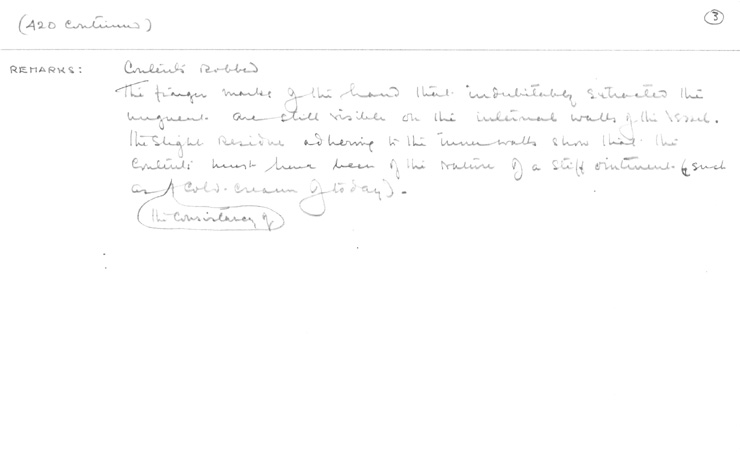 (420 continued)
3
REMARKS: Contents Robbed
The finger marks of the hand that indubitably extracted the
unguent are still visible on the internal walls of the vessel.
The slight residue adhering to the inner walls show that the
contents must have been of the nature of a stiff ointment (such
as cold-cream of today).
the consistency of